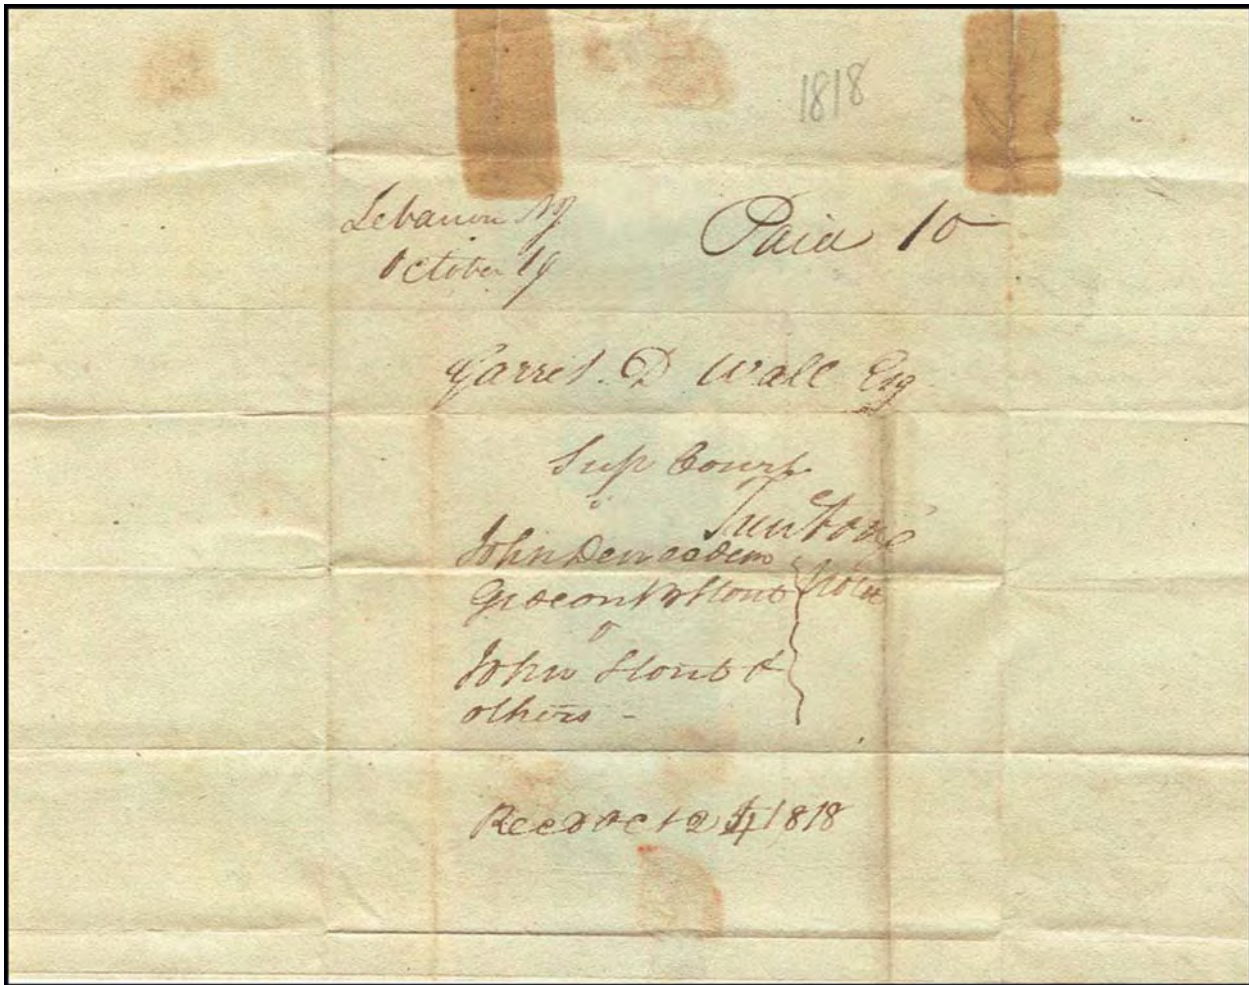 1818
Lebanon NJ
October 19
Paid 10
Garret D Wall Esq
Sup Court
Trentone
John Den ex dem
Gideon B Stout
v
John Stout &
others -
Recd Oct 24 1818